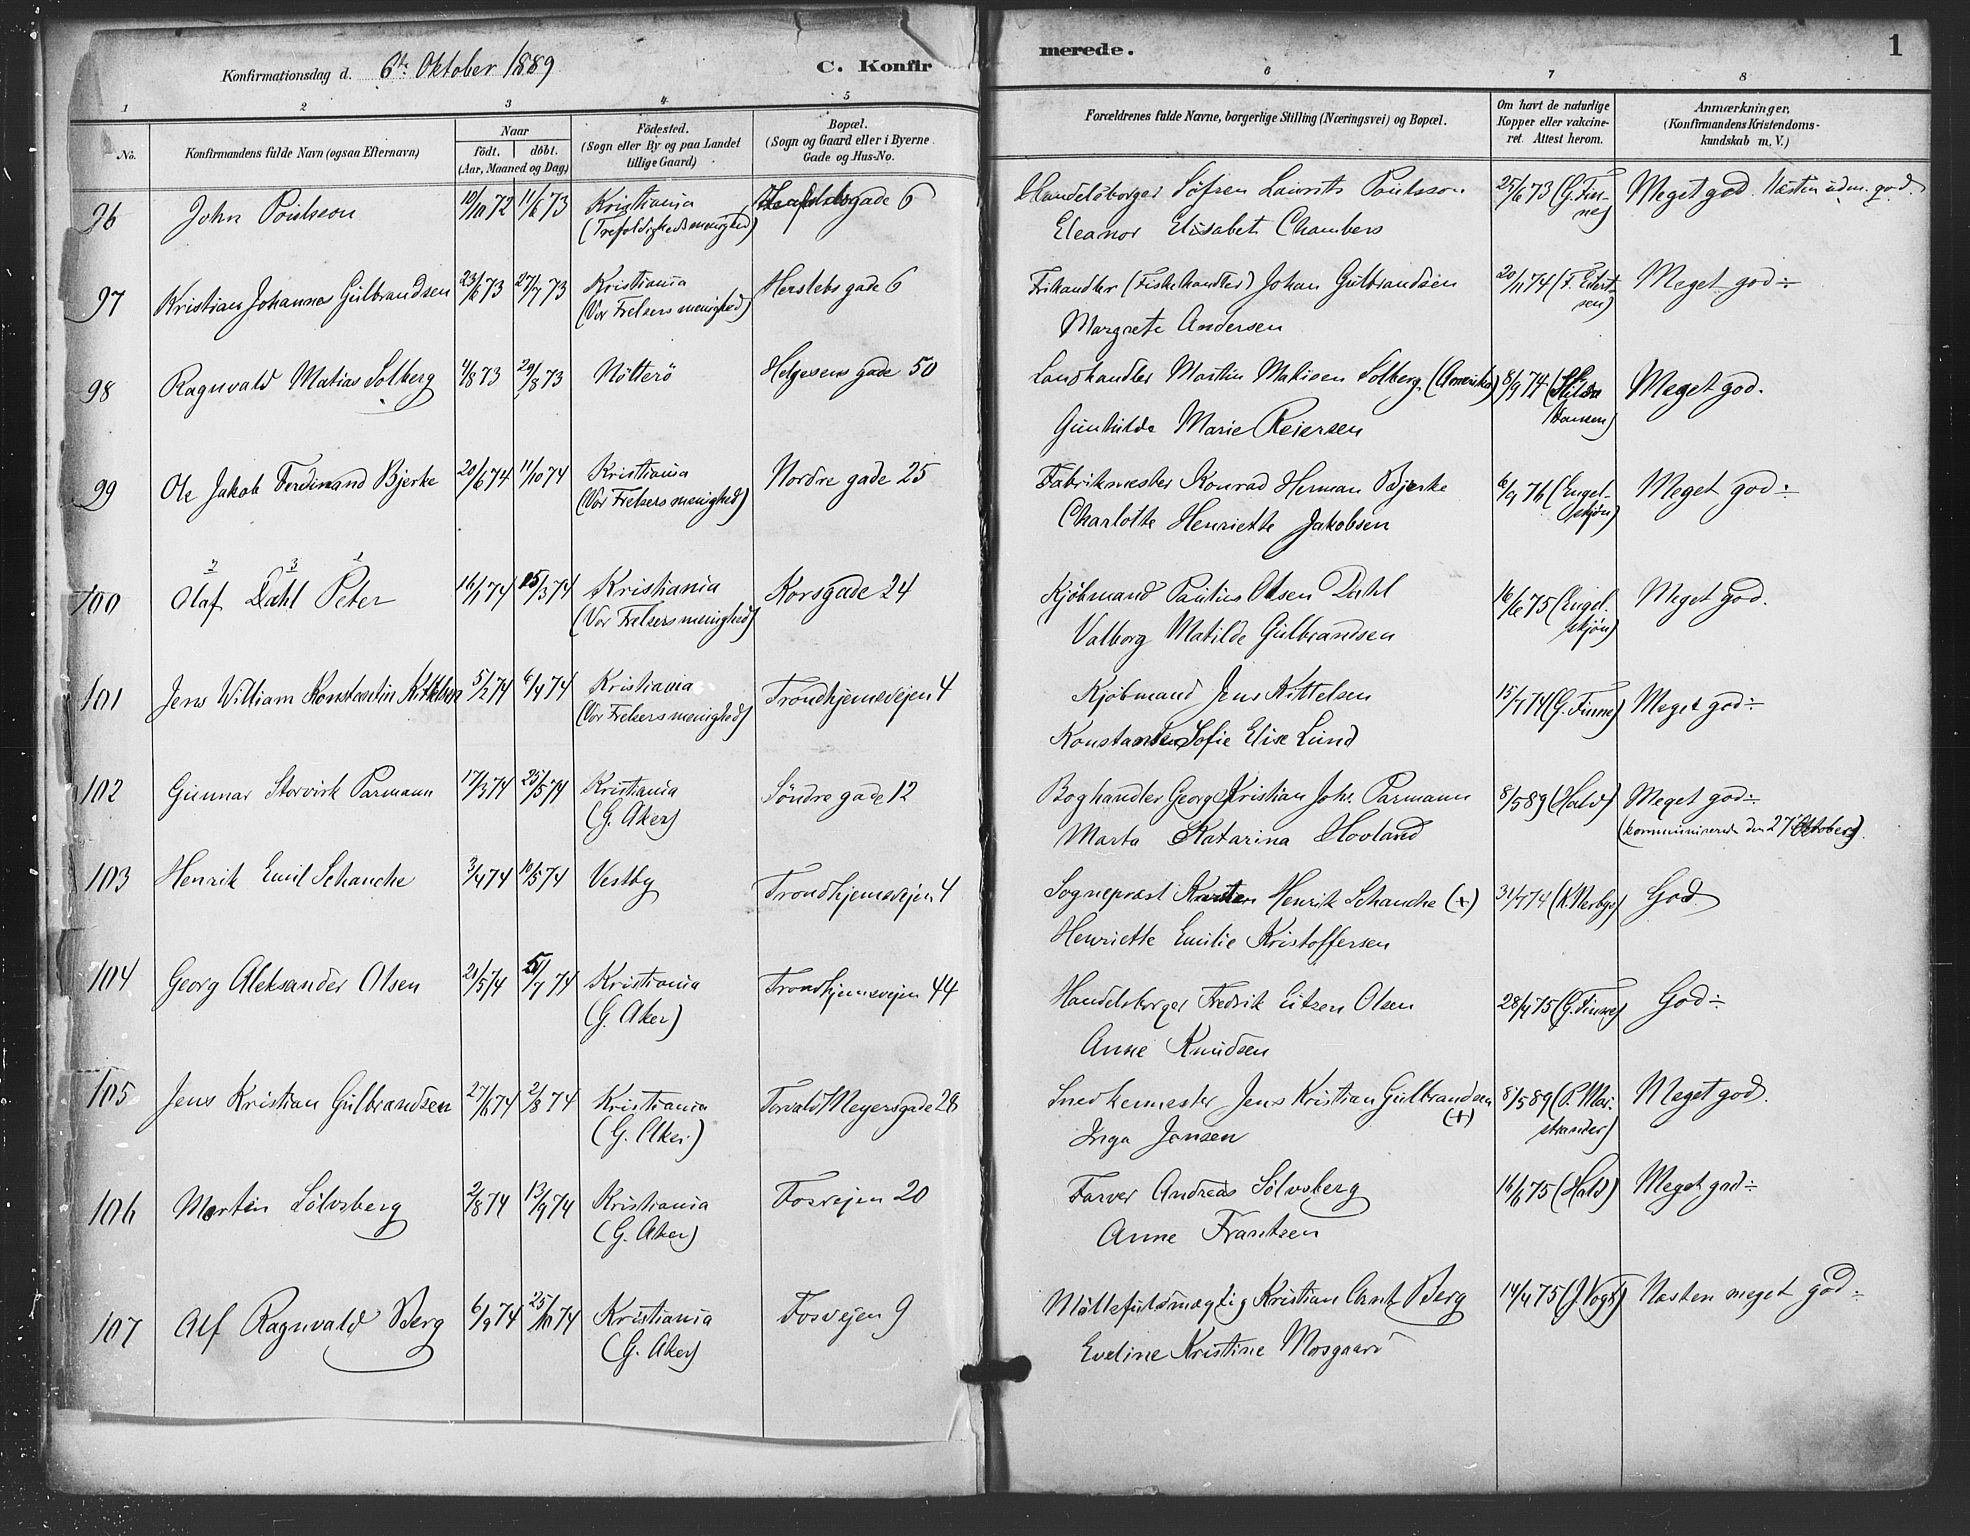 Konfirmationsdag d. 6te Oktober 1889
C. Konfirmerede.
1
1 2 3 4 5 6 7 8
No.
Konfirmandens fulde Navn (ogsaa Efternavn)
Naar
födt. döbt.
(Aar, Maaned og Dag)
Födested.
(Sogn eller By og paa Landet
tillige Gaard)
Bopæl.
(Sogn og Gaard eller i Byerne
Gade og Hus-No.
Forældrenes fulde Navne, borgerlige Stilling (Næringsvei) og Bopæl.
Om havt de naturlige
Kopper eller vakcine-
ret. Attest herom.
Anmærkninger,
(Konfirmandens Kristendoms-
kundskab m. V.)
96 John Poulsson 10/10 72 11/6 73 Kristiania gade 6 Handelsborger Søfren Laurits Poulsson 25/6 73 (G. Fin- Meget god. Næsten udm. god.
(Trefoldighedsmenighed) Eleanor Elisabet Chambers ne)
97 Kristian Johannes Gulbrandsen 23/6 73 27/7 73 Kristiania Herslebs gade 6 Frihandler (Fiskehandler) Johan Gulbrandsen 20/11 74 (F. Eilert- Meget god ÷
(Vor Frelsers menighed) Margrete Andersen sen)
98 Ragnvald Matias Solberg 4/8 73 29/8 73 Nötterö Helgesens gade 50 Landhandler Martin Matisen Solberg (Amerika) 8/9 74 (Hilda Meget god.
Gunhilde Marie Reiersen Hansen)
99 Ole Jakob Ferdinand Bjerke 20/6 74 11/10 74 Kristiania Nordre gade 25 Fabrikmester Konrad Herman Bjerke 6/9 76 (Engel- Meget god ÷
(Vor Frelsers menighed) Charlotte Henriette Jakobsen skjön)
2 3 1
100 Olaf Dahl Peter 16/1 74 15/3 74 Kristiania Korsgade 24 Kjöbmand Paulus Olsen Dahl 16/6 75 (Engel- Meget god.
(Vor Frelsers menighed) Valborg Matilde Gulbrandsen skjön)
101 Jens William Konstantin Kittelsen 5/2 74 6/4 74 Kristiania Trondhjemsvejen 4 Kjöbmand Jens Kittelsen 15/7 74 (G. Finne) Meget god ÷
(Vor Frelsers menighed) Konstanse Sofie Elise Lund
102 Gunnar Storvirk Parmann 17/3 74 25/5 74 Kristiania Söndre gade 12 Boghandler Georg Kristian Johs. Parmann 8/5 89 (Hald) Meget god ÷
(G. Aker) Marta Katarina Hovland (kommunicerede den 27 Oktober).
103 Henrik Emil Schanche 3/4 74 10/5 74 Vestby Trondhjemsvejen 4 Sogneprest Karsten Henrik Schanche (+) 31/7 74 God.
Henriette Emilie Kristoffersen
104 Georg Aleksander Olsen 21/5 74 5/7 74 Kristiania Trondhjemsvejen 44 Handelsborger Fredrik Eitzen Olsen 28/4 75 (G. Finne) God ÷
(G. Aker) Anne Knudsen
105 Jens Kristian Gulbrandsen 27/6 74 2/8 74 Kristiania Torvald Meyersgade 28 Snedkermester Jens Kristian Gulbrandsen 8/5 89 (P. Mar- Meget god.
(G. Aker) (+) Inga Jensen strander)
106 Martin Sölvsberg 2/8 74 13/9 74 Kristiania Fosvejen 20 Farver Andreas Sölvsberg 16/6 75 (Hald) Meget god ÷
(G. Aker) Anne Frantsen
107 Alf Ragnvald Berg 6/9 74 25/10 74 Kristiania Fosvejen 9 Möllefuldmægtig Kristian Arnt Berg 14/4 75 (J. Vogt) Næsten meget god ÷
(G. Aker) Eveline Kristine Mosgaard